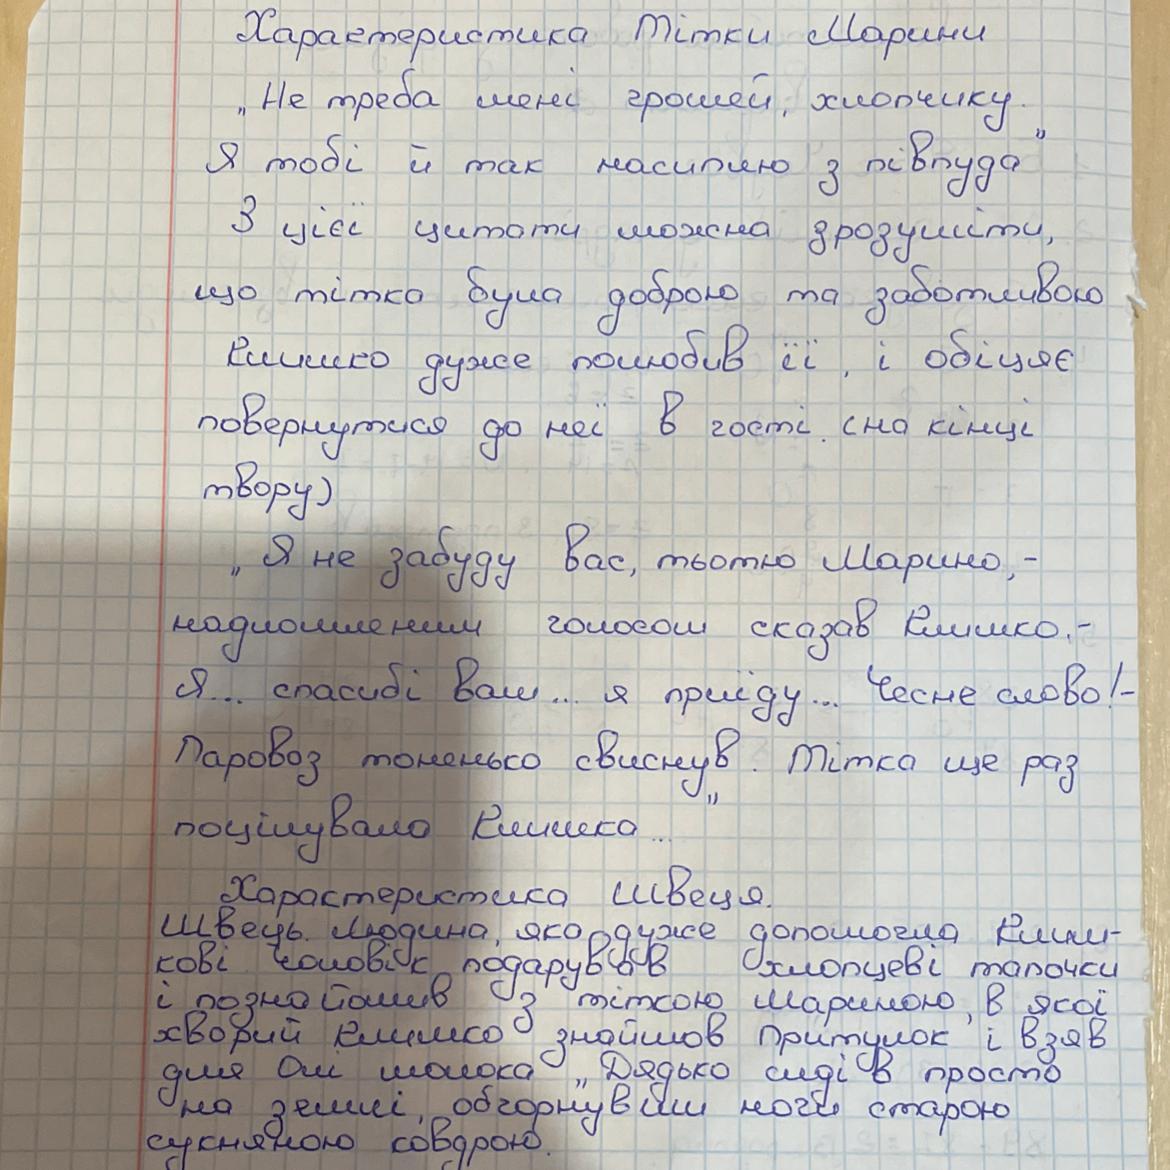 Характеристика Тітки Марини
„Не треба мені грошей, хлопчику.
Я тобі й так насиплю з півпуда"
З цієї цитати можна зрозуміти,
що тітка була доброю та заботливою
Климко дуже полюбив її, і обіцяє
повернутися до неї в гості (на кінці
твору)
„Я не забуду вас, тьотю Марино,-
надломленим голосом сказав Климко.-
Я... спасибі вам... я приїду... Чесне слово!-
Паровоз тоненько свиснув. Тітка ще раз
поцілувала Климка..."
Характеристика Швеця.
Швець. Людина, яка дуже допомогла Клим-
кові Чоловік подарував хлопцеві тапочки
і познайомив з тіткою Мариною, в якої
хворий Климко знайшов притулок і взяв
для Олі молока „Дядько сидів просто
на землі, обгорнувши ноги старою
сукняною ковдрою.